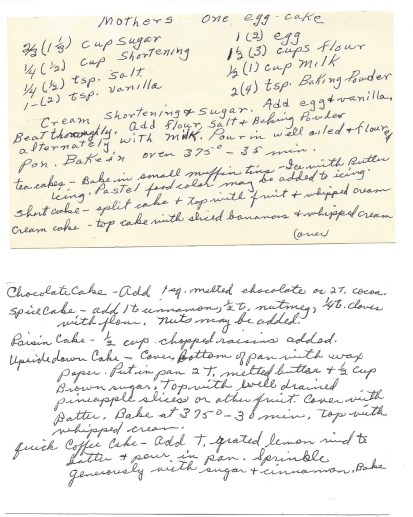 Mothers One egg cake
2/3 (1 1/3) cup sugar 1 (2) egg
1/4 (1/2) cup Shortening 1 1/2 (3) cups flour
1/4 (1/2) tsp. salt 1/2 (1) cup Milk
1-(2) tsp. vanilla 2 (4) tsp. Baking Powder
Cream Shortening & Sugar. Add egg & vanilla.
Beat thoroughly. Add flour, salt & Baking Powder
alternately with milk. Pour in well oiled & floured
Pan. Bake in oven 375° - 35 min.
tea cakes - Bake in small muffin tins - Ice with Butter
Icing. Pastel food color may be added to icing.
Short cake - split cake & top with fruit & whipped cream
Cream cake - top cake with sliced bananas & whipped cream
(over)
Chocolate Cake - Add 1 sq. melted chocolate or 2 T. cocoa.
Spice Cake - add 1 t cinnamon, 1/2 t, nutmeg, 1/4 t. cloves
with flour. Nuts may be added.
Raisin Cake - 1/2 cup chopped raisins added.
Upside down Cake - Cover Bottom of pan with wax
paper. Put in pan 2 T, melted butter & 1/2 cup
Brown sugar. Top with well drained
pineapple slices or other fruit. Cover with
Batter. Bake at 375° - 30 min. Top with
whipped cream.
Quick Coffee Cake - Add T, grated lemon rind to
batter & pour in pan. Sprinkle
generously with sugar & cinnamon. Bake